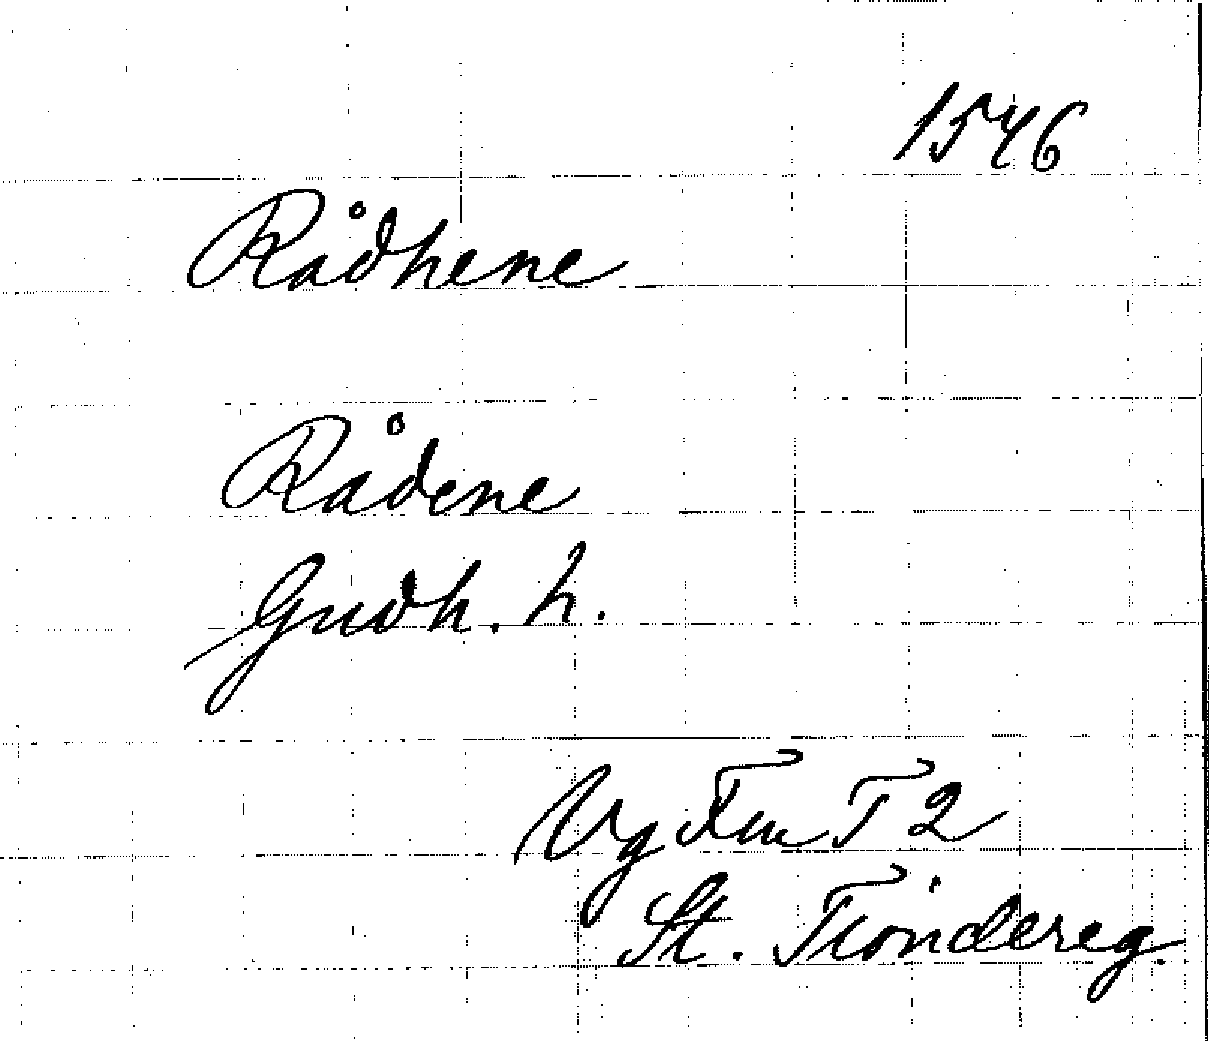 1546
Rådhene
Rådene
Gudh. h.
Vg T 2
St. Tiondereg.